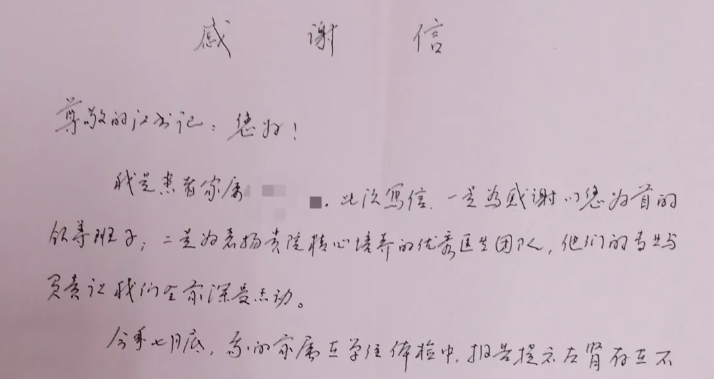 感谢信
尊敬的江书记：您好！
我是患者家属 ，此次写信，一是为感谢以您为首的
领导班子；二是为表扬贵院精心培养的优秀医生团队，他们的专业与
负责让我们全家深受感动。
今年七月底，我的家属在单位体检中，报告提示左肾存在不